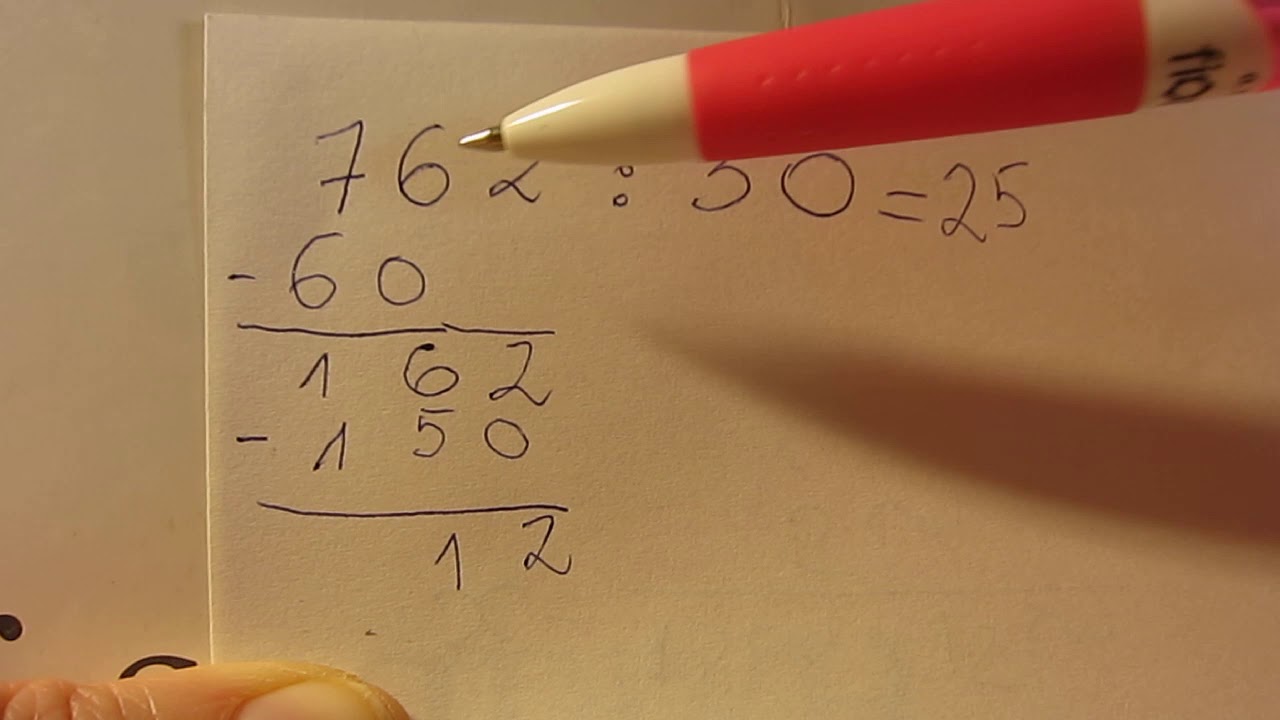 762 : 30 = 25
- 60
162
- 150
12